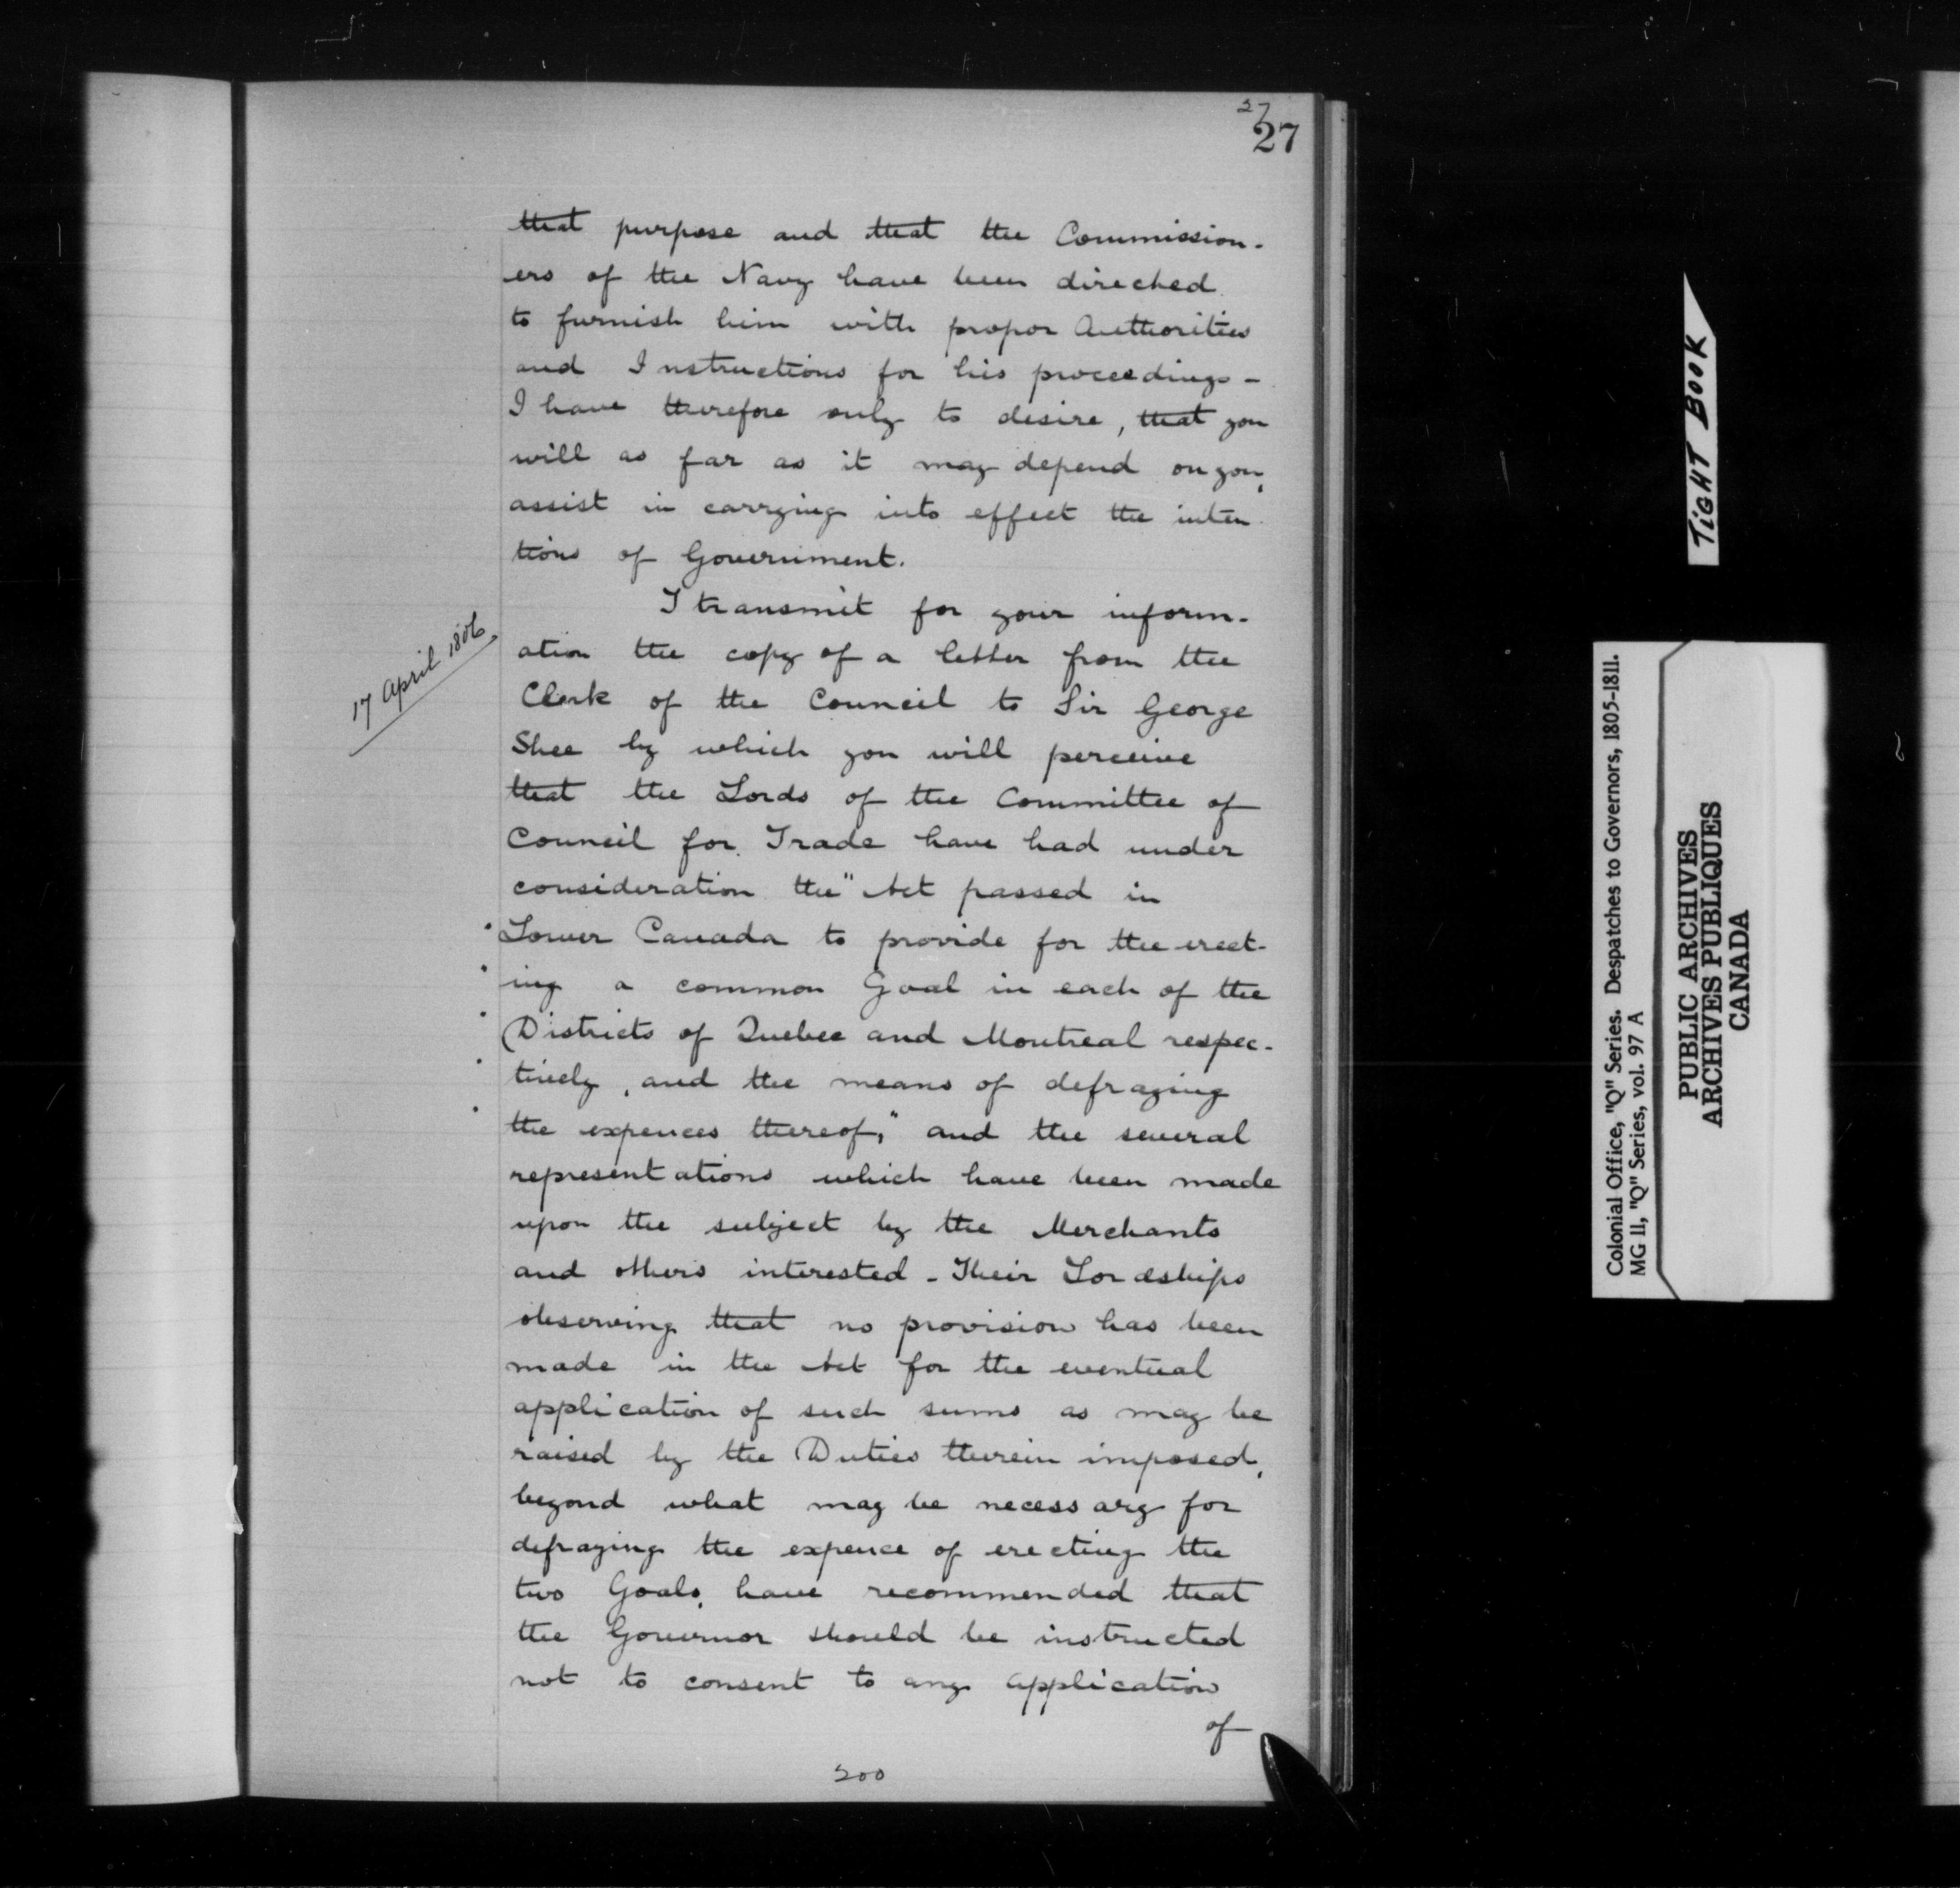 27
27
that purpose and that the Commission-
ers of the Navy have been directed
to furnish him with propor Authorities
and Instructions for his proceedings -
I have therefore only to desire, that you
will as far as it may depend on you,
assist in carrying into effect the inten
tions of Government.
17 April 1806
I transmit for your inform-
ation the copy of a letter from the
Clerk of the Council to Sir George
Shee by which you will perceive
that the Lords of the Committee of
Council for Trade have had under
consideration the "Act passed in
Lower Canada to provide for the erect-
ing a common Goal in each of the
Districts of Quebec and Montreal respec-
tively, and the means of defraying
the expences thereof," and the several
representations which have been made
upon the subject by the Merchants
and others interested - Their Lordships
observing that no provision has been
made in the Act for the eventual
application of such sums as may be
raised by the Duties therein imposed,
beyond what may be necessary for
defraying the expence of erecting the
two Goals, have recommended that
the Governor should be instructed
not to consent to any application
of
200
TIGHT BOOK
Colonial Office, "Q" Series. Despatches to Governors, 1805-1811.
MG 11, "Q" Series, vol. 97 A
PUBLIC ARCHIVES
ARCHIVES PUBLIQUES
CANADA